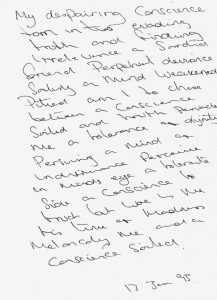 My despairing Conscience
torn in two evading
truth and finding
Irrelevance a Sordid
friend Perpetual demise
Soiling a Mind Weakened
Pitied am I to chose
between a Conscience
Soiled and truth
me a tolerance of
Persuing a mind of
Indifference Perceive
in minds eye a tolerate
Side a Conscience is
truth but like is the
his time of Madness
Melancoly me and a
Conscience Soiled.
17 Jan 95